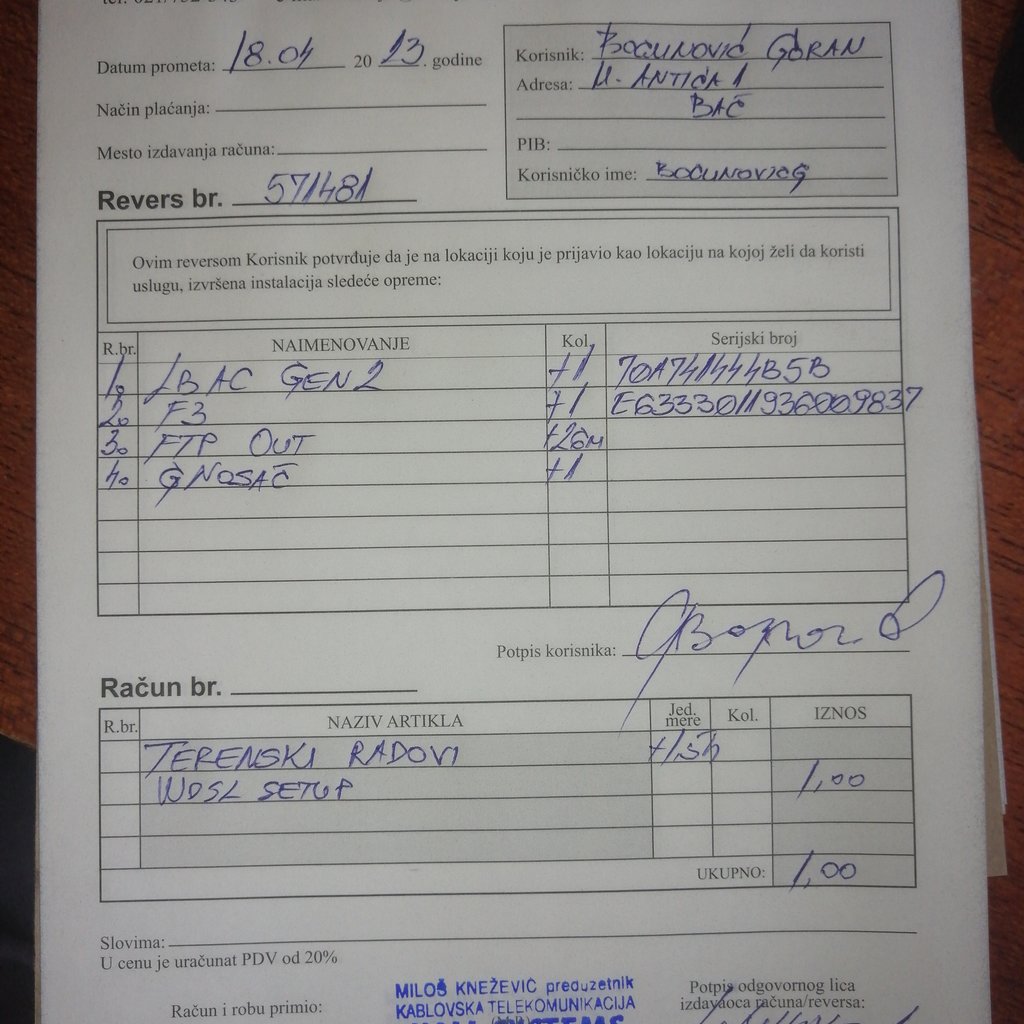 Datum prometa: 18.04 2013. godine
Način plaćanja:
Mesto izdavanja računa:
Revers br. 571481
Korisnik: BOCUNOVIĆ GORAN
Adresa: M. ANTIĆA 1
BAČ
PIB:
Korisničko ime: BOCUNOVICG
Ovim reversom Korisnik potvrđuje da je na lokaciji koju je prijavio kao lokaciju na kojoj želi da koristi
uslugu, izvršena instalacija sledeće opreme:
R.br. NAIMENOVANJE Kol. Serijski broj
1. LBAC GEN2 +1 70A741444B5B
2. F3 +1 EG333011936009837
3. FTP OUT +26m
4. GNOSAČ +1
Potpis korisnika:
Račun br.
R.br. NAZIV ARTIKLA Jed. mere Kol. IZNOS
TERENSKI RADOVI
WDSL SETUP 1,00
UKUPNO: 1,00
Slovima:
U cenu je uračunat PDV od 20%
Račun i robu primio:
MILOŠ KNEŽEVIĆ preduzetnik
KABLOVSKA TELEKOMUNIKACIJA
Potpis odgovornog lica
izdavaoca računa/reversa: